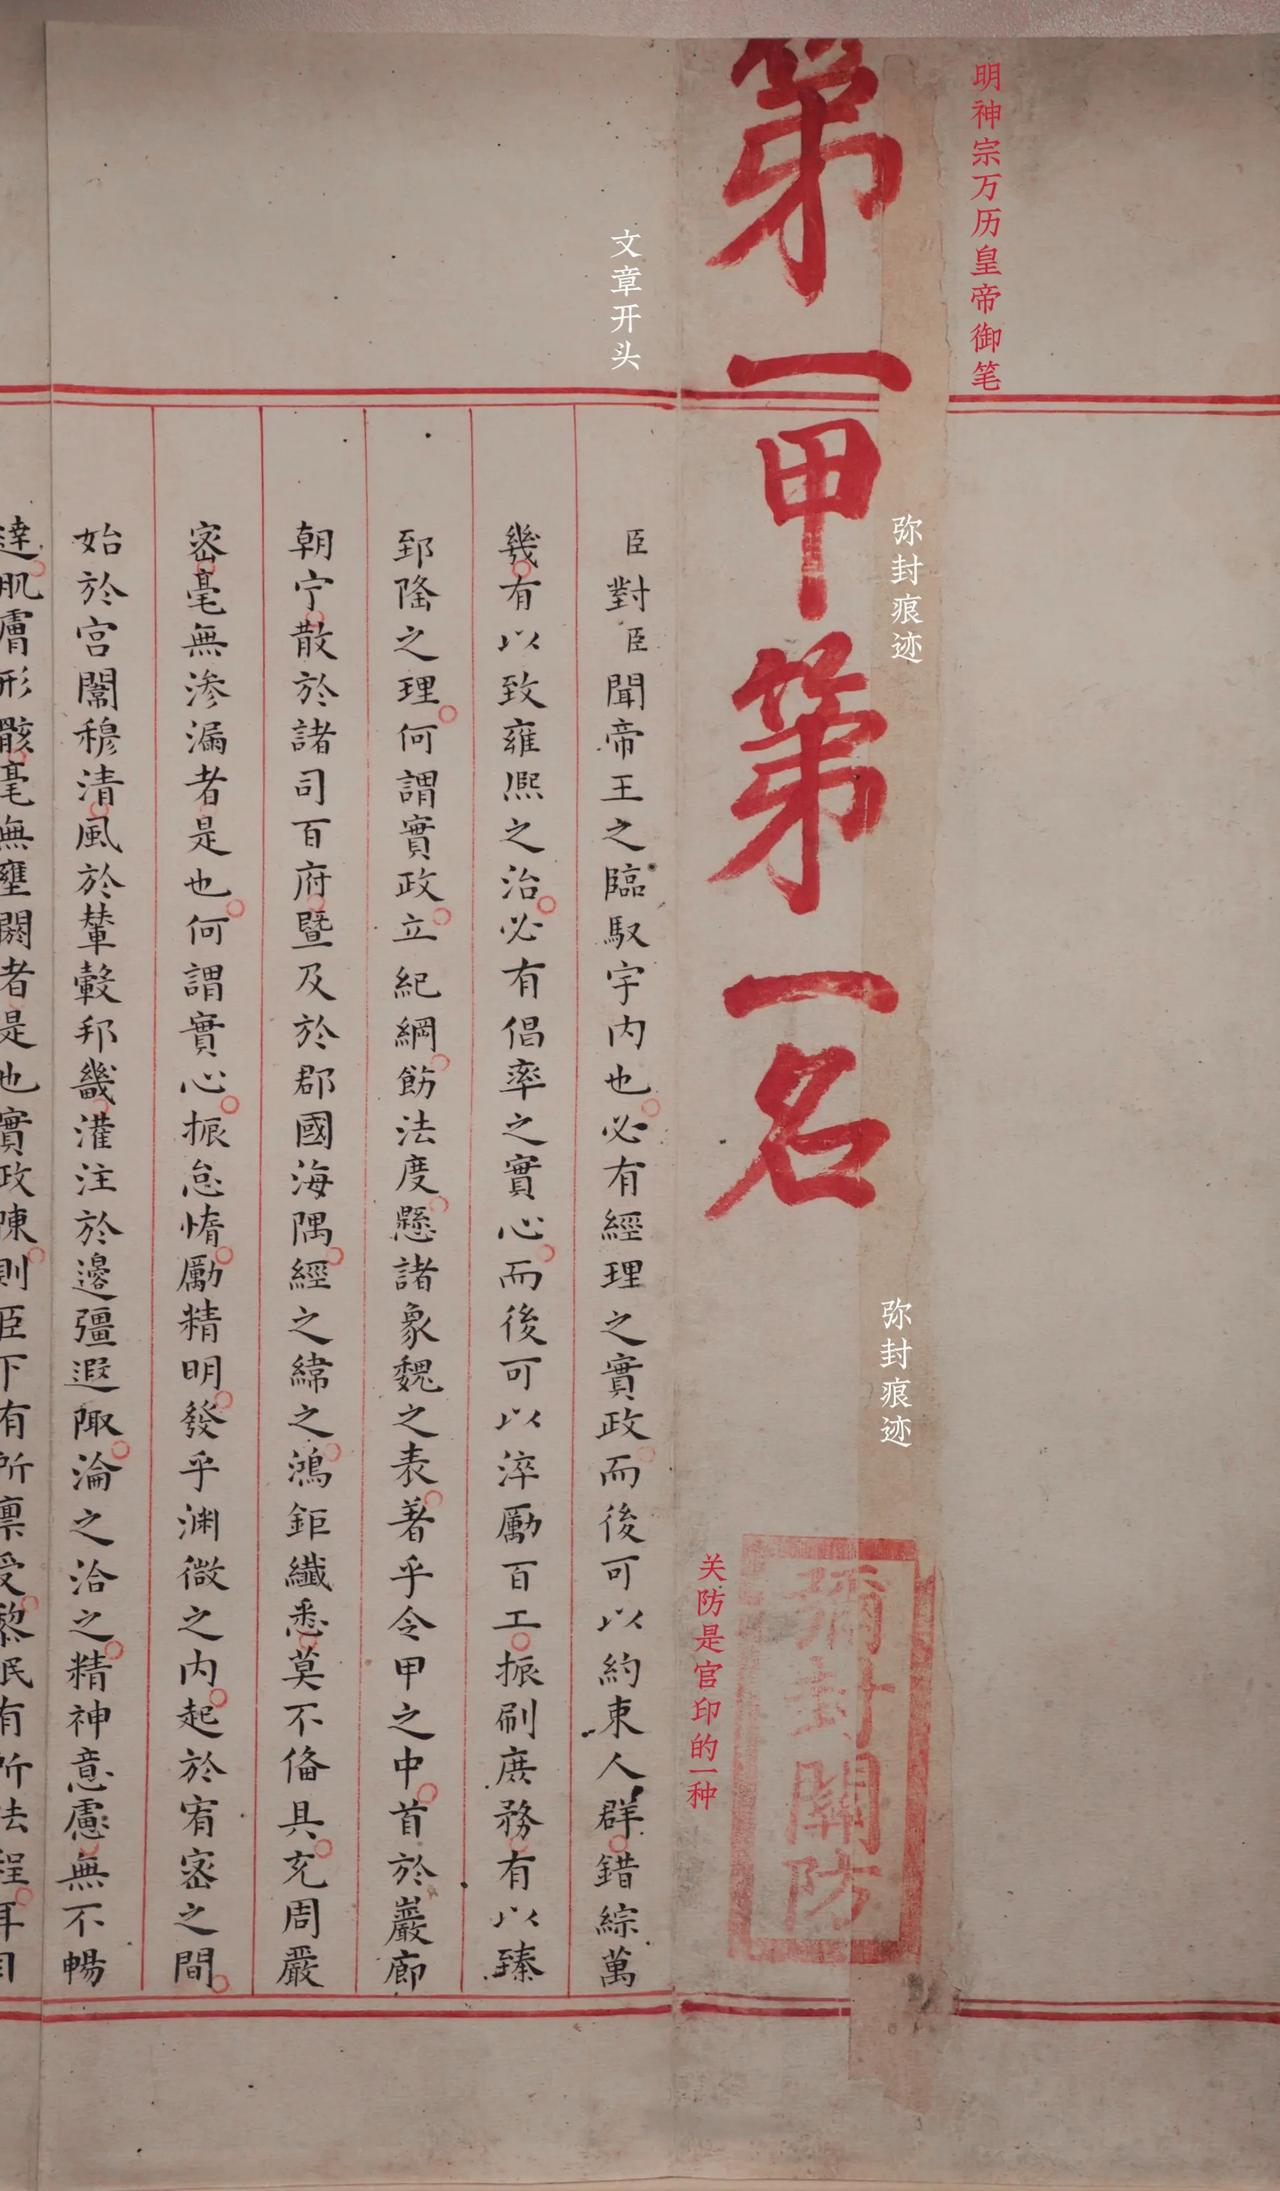 明神宗万历皇帝御笔
第一甲第一名
弥封痕迹
弥封痕迹
彌封關防
关防是官印的一种
文章开头
臣對臣聞帝王之臨馭宇内也必有經理之實政而後可以約束人群錯綜萬
幾有以致雍熙之治必有倡率之實心而後可以淬厲百工振刷庶務有以臻
郅隆之理何謂實政立紀綱飭法度懸諸象魏之表著乎令甲之中首於巖廊
朝宁散於諸司百府暨及於郡國海隅經之緯之鴻鉅纖悉莫不俻具充周嚴
宻毫無滲漏者是也何謂實心振怠惰勵精明發乎渊微之内起於宥宻之間
始於宫闈穆清風於輦轂邦畿灌注於邊疆遐陬淪之洽之精神意慮無不暢
達肌膚形骸毫無壅閼者是也實政陳則臣下有所禀受黎民有所法程耳目